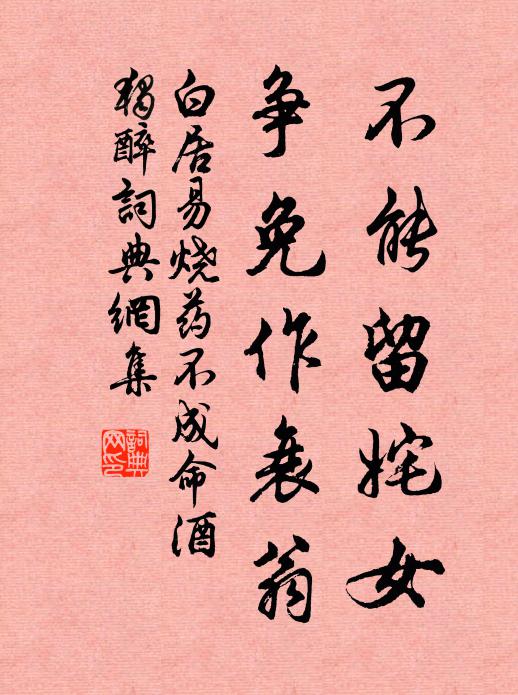 不能留姹女
争免作衰翁
白居易烧药不成命酒
独醉詞典網集
詞典
网印